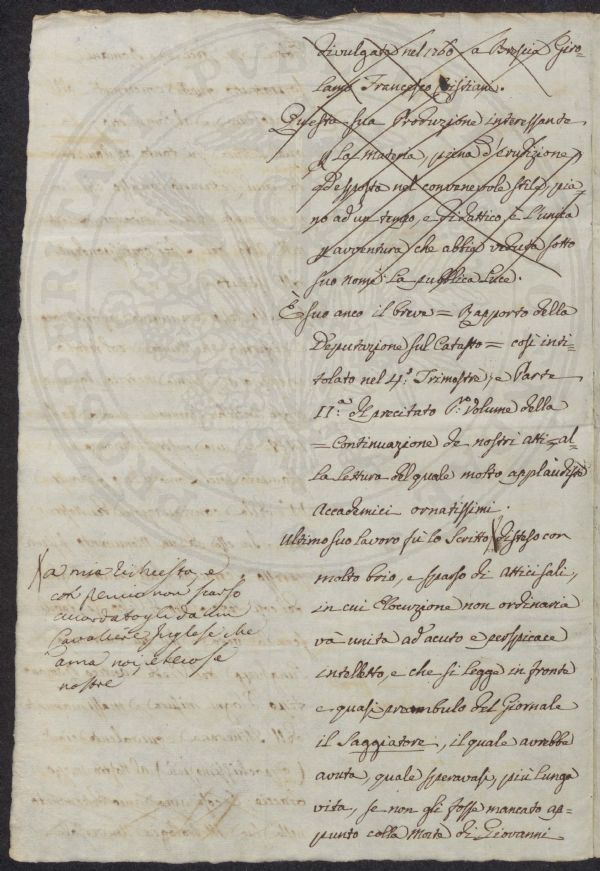 divulgato nel 1760 a Brescia Giro-
lamo Francesco Cristiani.
Questa sua Produzione interessante
p la materia, piena d'erudizione,
ed esposta nel convenevole stile, pia-
no ad un tempo, e didattico è l'unica
p avventura, che abbia veduta sotto
suo nome la pubblica luce.
È suo anco il breve = Rapporto della
Deputazione sul Catasto = così inti-
tolato nel 4.º Trimestre, e Parte
II.ª del precitato P.º Volume della
= Continuazione de nostri atti = al-
la lettura del quale molto applaudiste
Accademici ornatissimi.
Ultimo suo lavoro fù lo Scritto disteso con
molto brio, e sparso di attici sali,
in cui Elocuzione non ordinaria
và unita ad acuto e perspicace
intelletto, e che si legge in fronte
e quasi preambulo del Giornale
il Saggiatore, il quale avrebbe
avuta, quale speravasi, più lunga
vita, se non gli fosse mancato ap-
punto colla Morte di Giovanni
a mia richiesta, e
con premio non scarso
accordatogli da un
Cavaliere Inglese che
ama noi, e le cose
nostre